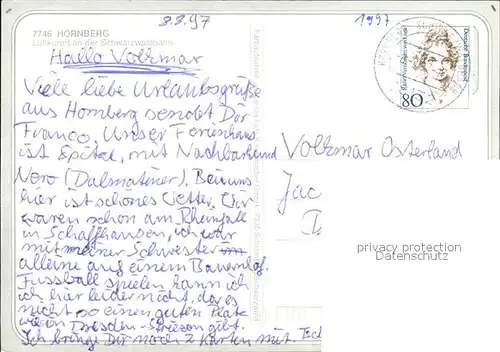 8.8.97
1997
7746 HORNBERG
Luftkurort an der Schwarzwaldbahn
Hallo Volkmar
Viele liebe Urlaubsgrüße
aus Hornberg sendet Dir
Franco. Unser Ferienhaus
ist Spitze, mit Nachbarhund
Nero (Dalmatiner). Bei uns
hier ist schönes Wetter. Wir
waren schon am Rheinfall
in Schaffhausen, ich war
mit meiner Schwester
alleine auf einem Bauernhof.
Fussball spielen kann ich
ich hier leider nicht, da es
nicht so einen guten Platz
wie in Dresden-Striesen gibt.
Ich bringe Dir noch 2 Karten mit.
Deutsche Bundespost
80
Volkmar Osterland
Jac
privacy protection
Sammleraktuell.de